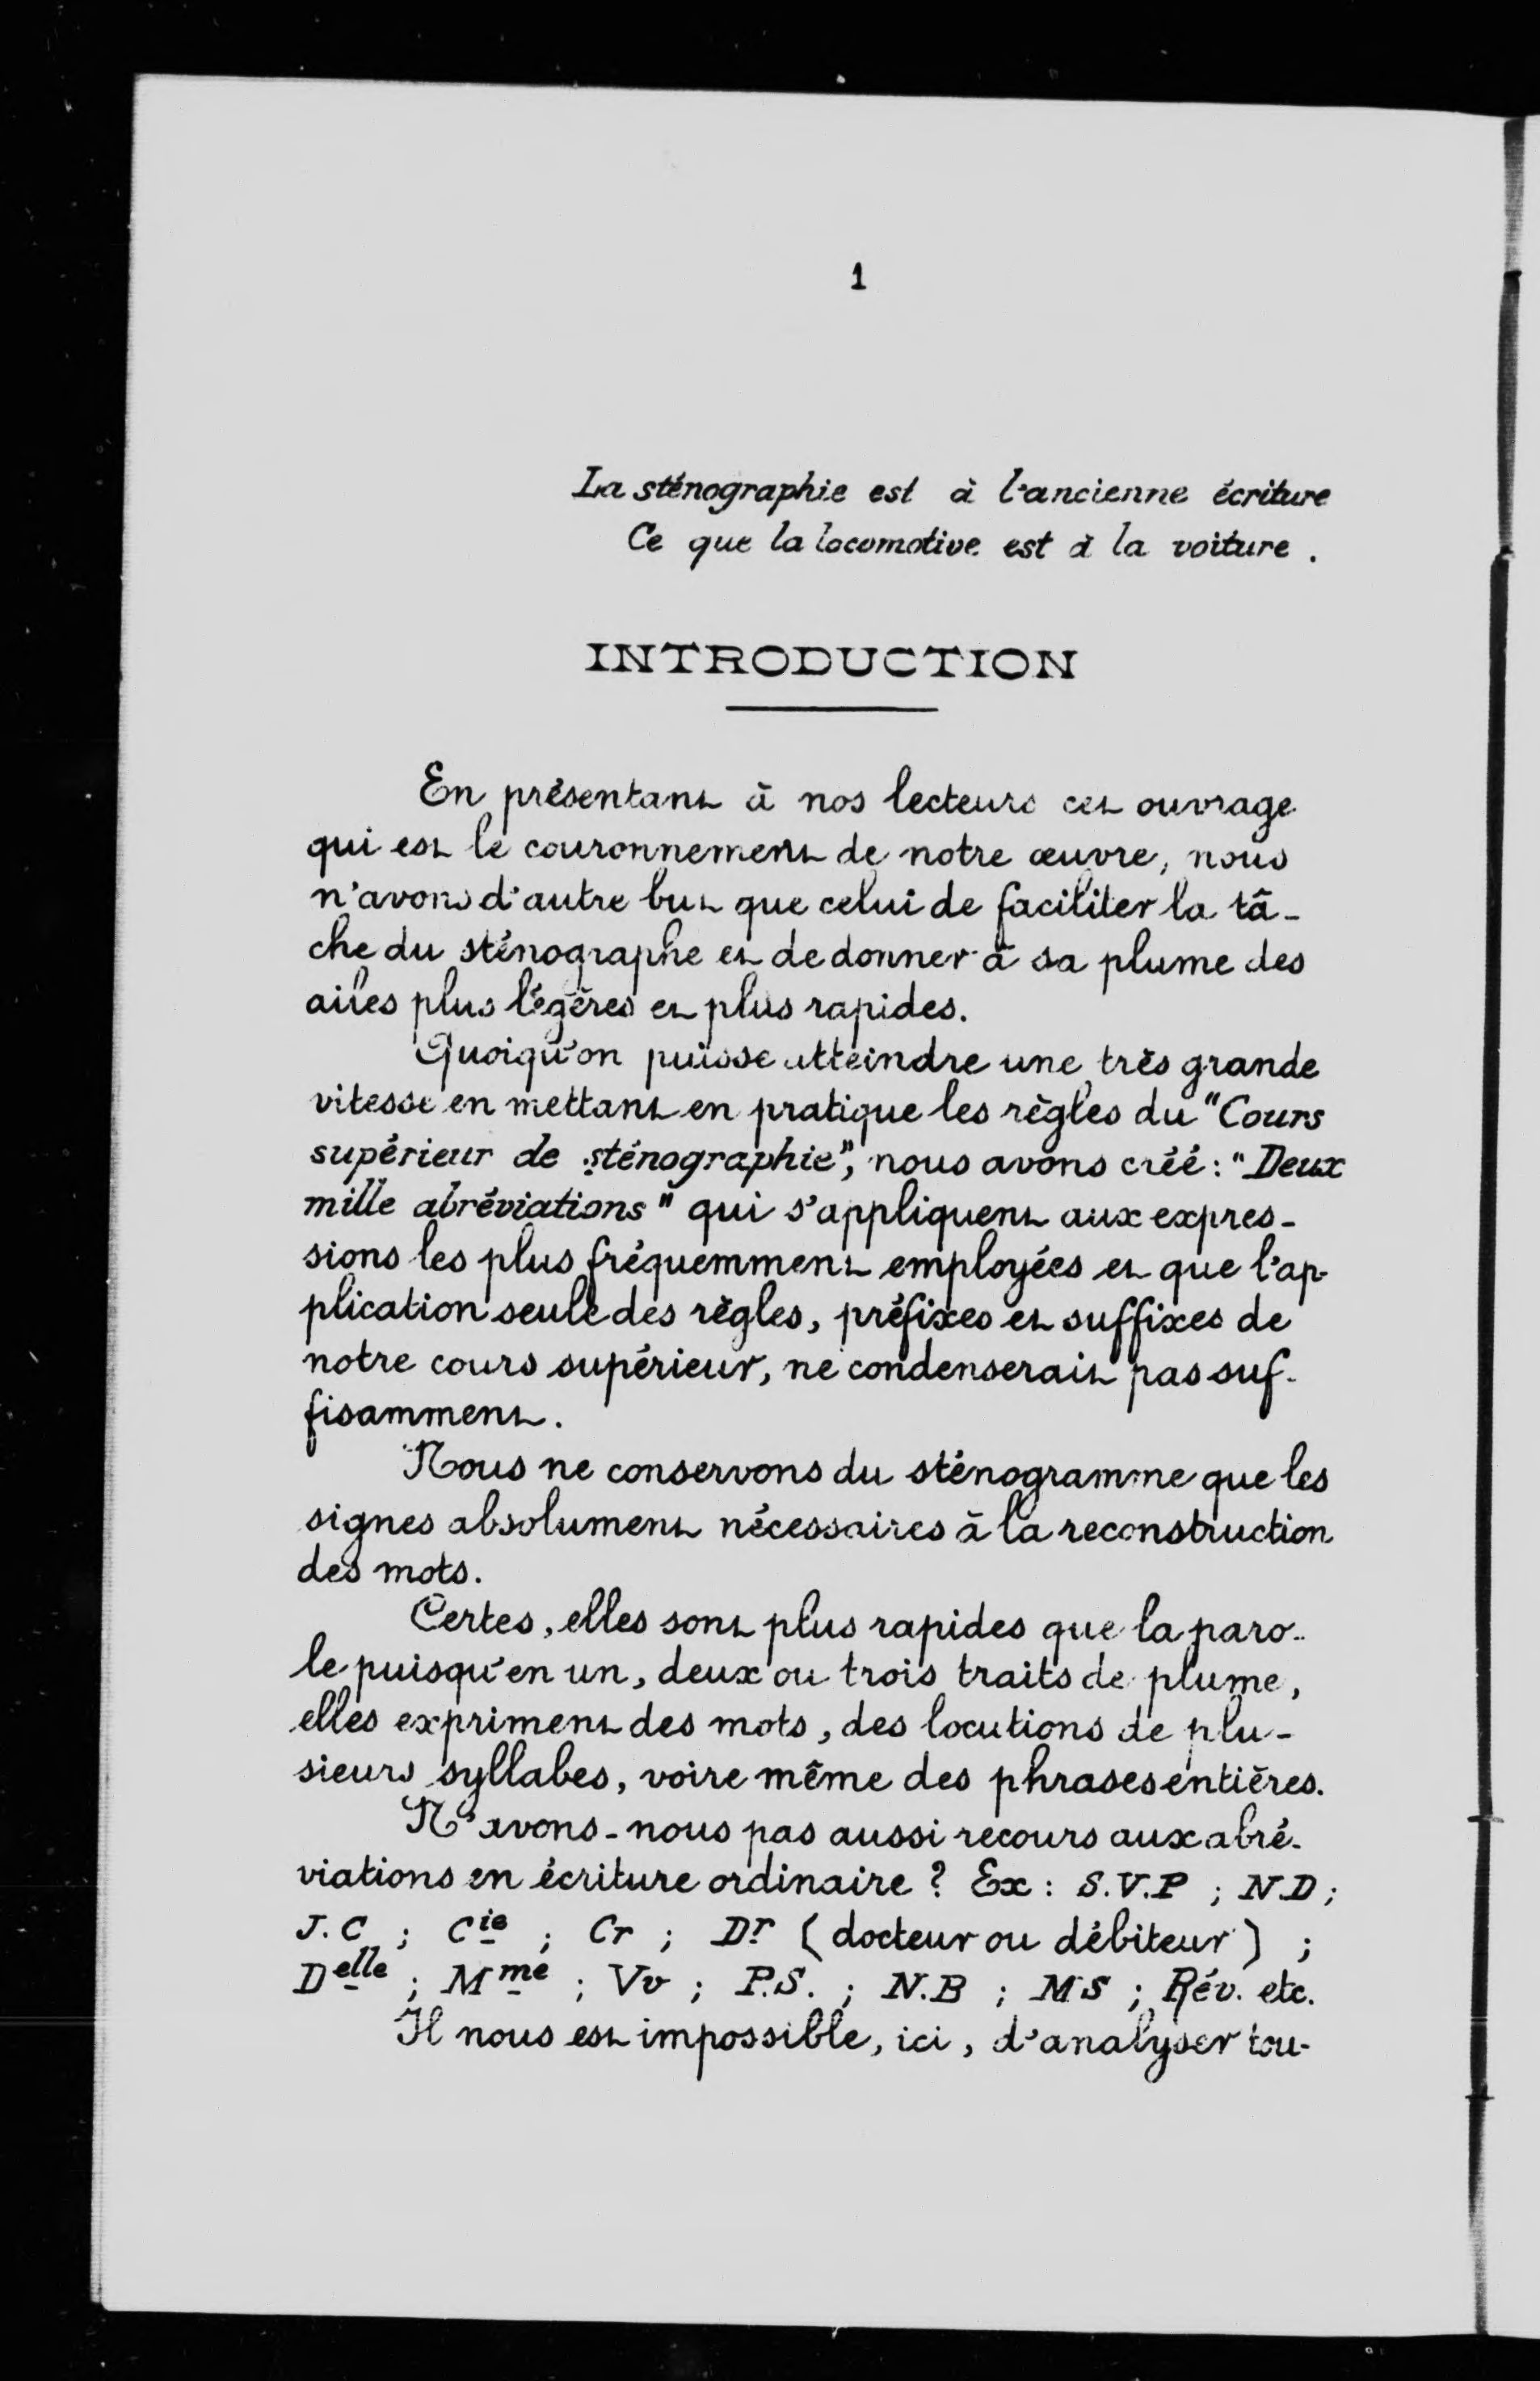 1
La sténographie est à l'ancienne écriture
Ce que la locomotive est à la voiture.
INTRODUCTION
En présentant à nos lecteurs cet ouvrage
qui est le couronnement de notre œuvre, nous
n'avons d'autre but que celui de faciliter la tâ-
che du sténographe et de donner à sa plume des
ailes plus légères et plus rapides.
Quoiqu'on puisse atteindre une très grande
vitesse en mettant en pratique les règles du "Cours
supérieur de sténographie", nous avons créé : "Deux
mille abréviations" qui s'appliquent aux expres-
sions les plus fréquemment employées et que l'ap-
plication seule des règles, préfixes et suffixes de
notre cours supérieur, ne condenserait pas suf-
fisamment.
Nous ne conservons du sténogramme que les
signes absolument nécessaires à la reconstruction
des mots.
Certes, elles sont plus rapides que la paro-
le puisqu'en un, deux ou trois traits de plume,
elles expriment des mots, des locutions de plu-
sieurs syllabes, voire même des phrases entières.
N'avons-nous pas aussi recours aux abré-
viations en écriture ordinaire ? Ex : S.V.P ; N.D ;
J.C ; Cie ; Cr ; Dr (docteur ou débiteur) ;
Delle ; Mme ; Vv ; P.S. ; N.B ; MS ; Rév. etc.
Il nous est impossible, ici, d'analyser tou-